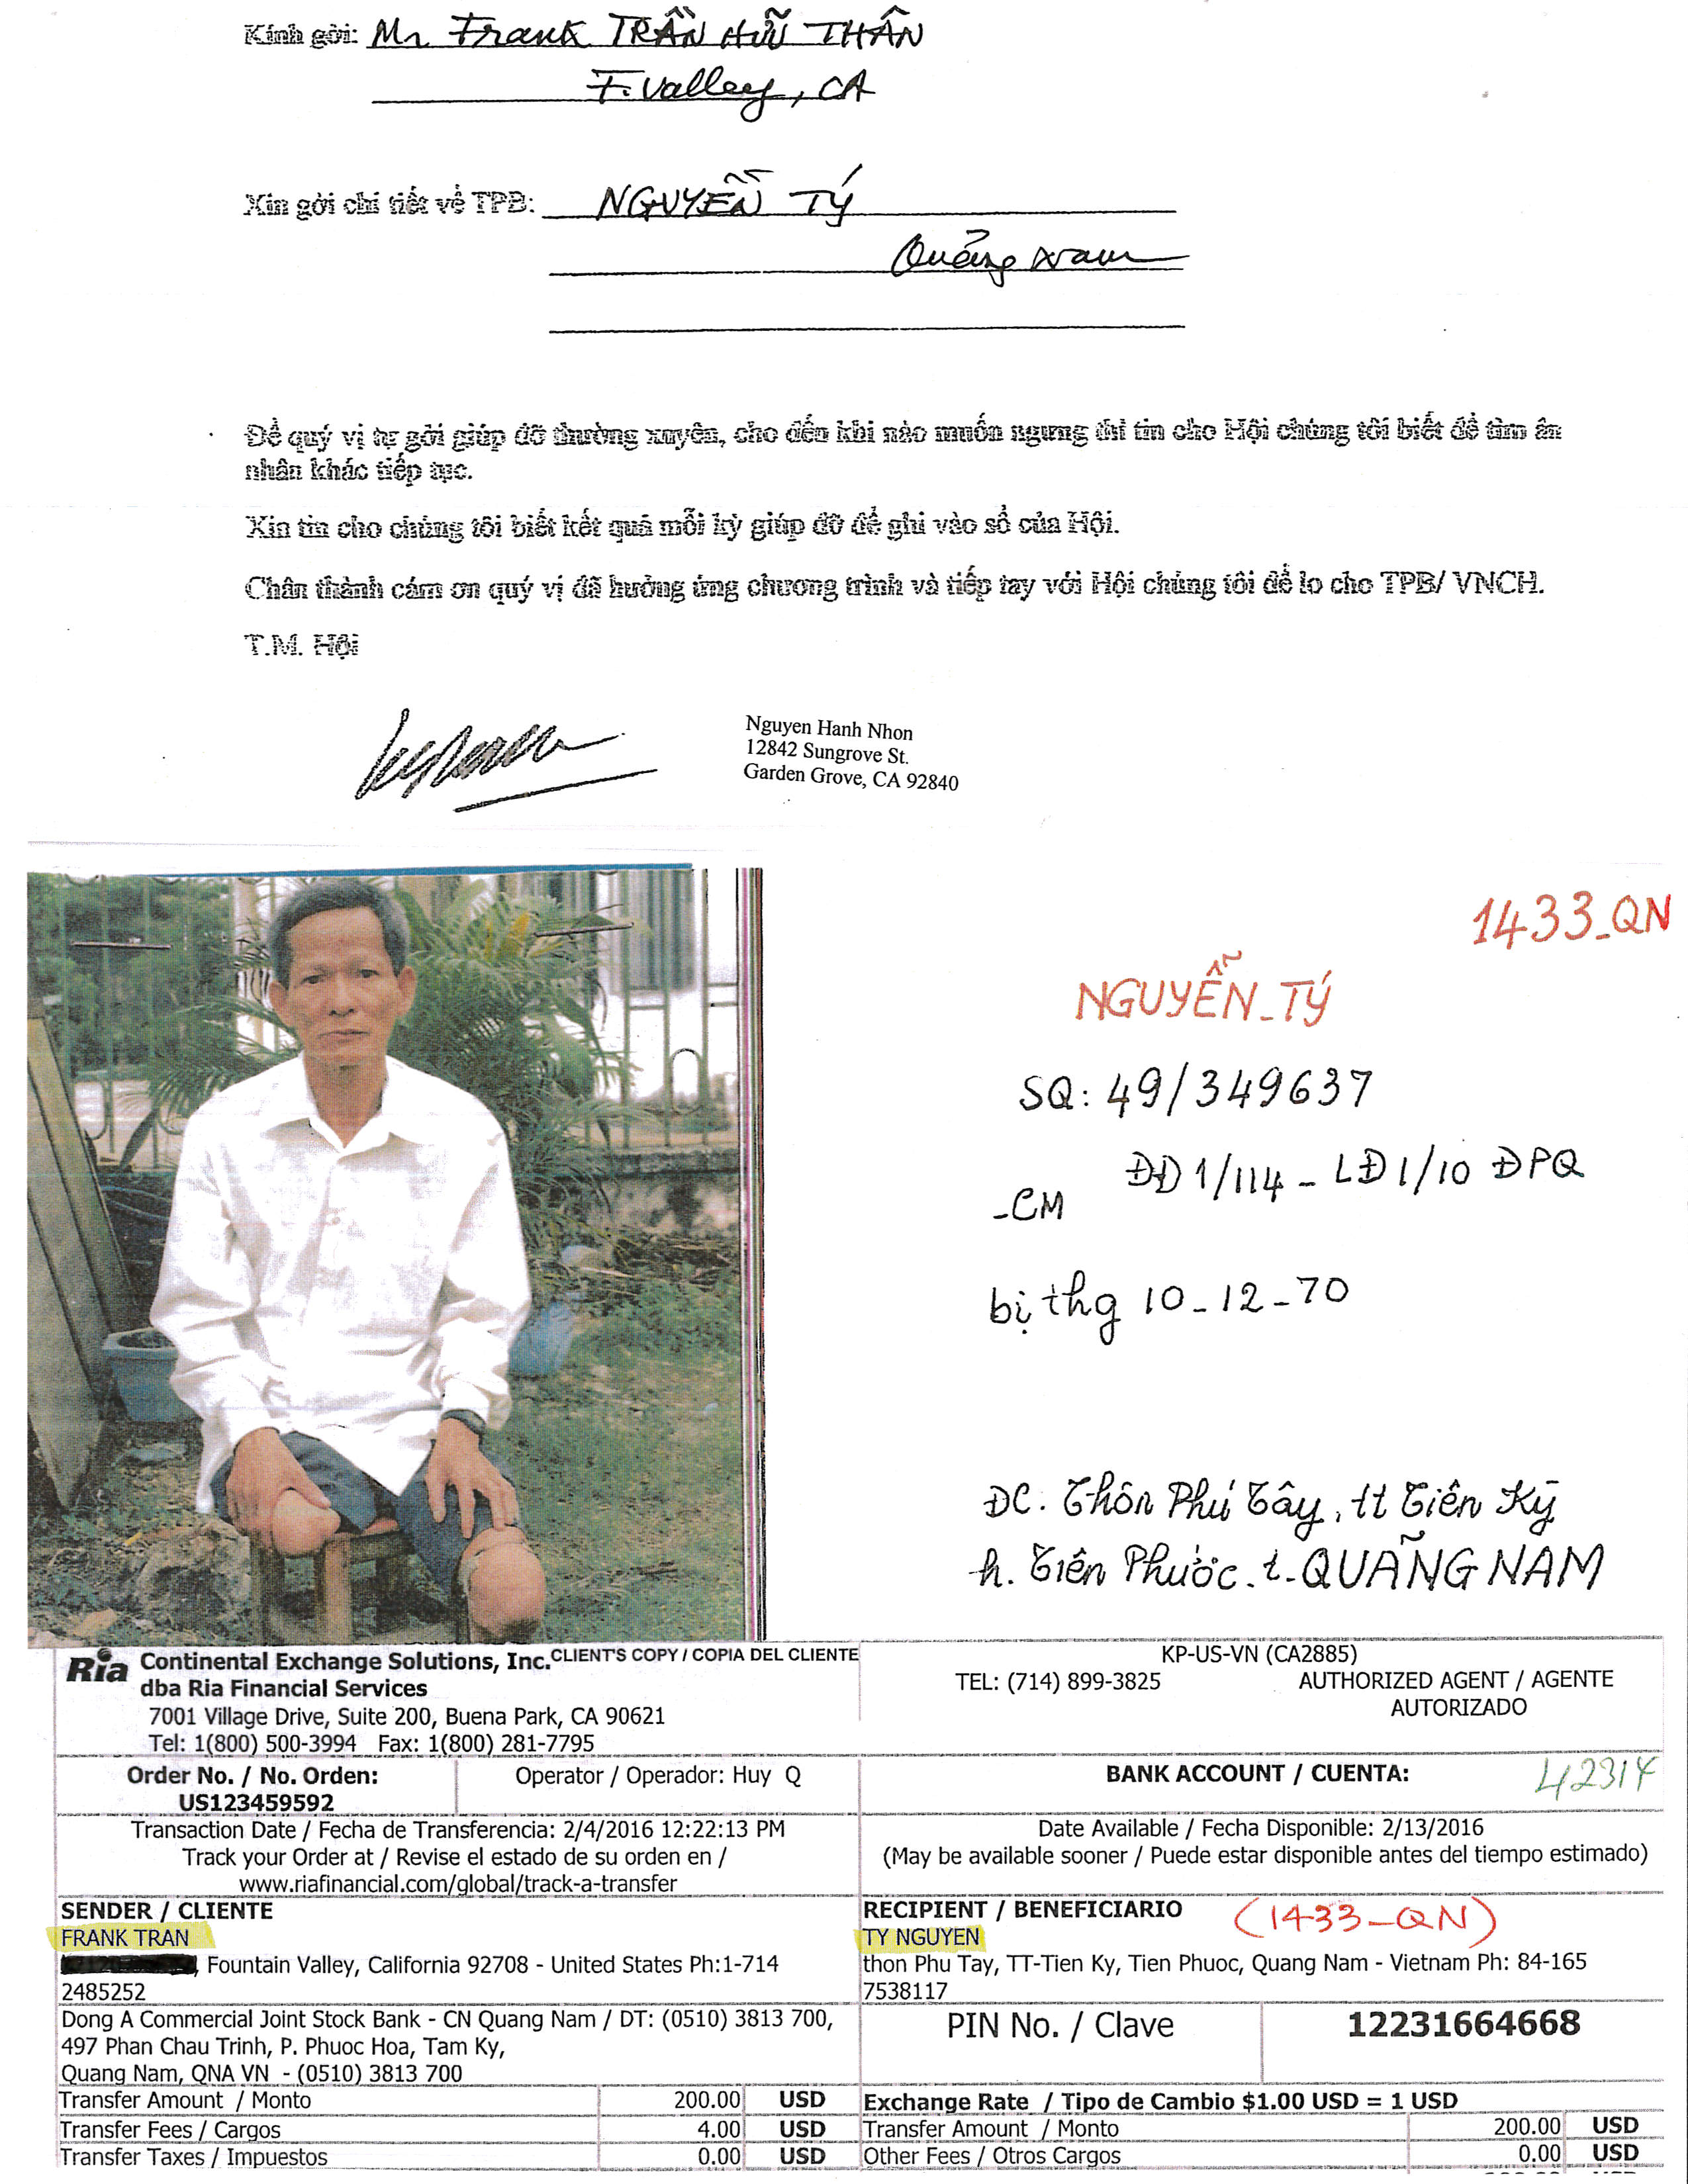 Kính gởi: Mr Frank TRẦN HỮU THÂN
F. Valley, CA
Xin gởi chi tiết về TPB: NGUYỄN TÝ
Quảng Nam
Để quý vị tự gởi giúp đỡ thường xuyên, cho đến khi nào muốn ngưng thì tin cho Hội chúng tôi biết để tìm ân
nhân khác tiếp tục.
Xin tin cho chúng tôi biết kết quả mỗi kỳ giúp đỡ để ghi vào sổ của Hội.
Chân thành cám ơn quý vị đã hưởng ứng chương trình và tiếp tay với Hội chúng tôi để lo cho TPB/ VNCH.
T.M. Hội
Nguyen Hanh Nhon
12842 Sungrove St.
Garden Grove, CA 92840
1433_QN
NGUYỄN_TÝ
SQ: 49/349637
ĐĐ 1/114 - LĐ 1/10 ĐPQ
-CM
bị thg 10-12-70
ĐC. Thôn Phú Tây, tt Tiên Kỹ
h. Tiên Phước. t. QUÃNG NAM
Ria Continental Exchange Solutions, Inc. CLIENT'S COPY / COPIA DEL CLIENTE
dba Ria Financial Services
7001 Village Drive, Suite 200, Buena Park, CA 90621
Tel: 1(800) 500-3994 Fax: 1(800) 281-7795
KP-US-VN (CA2885)
TEL: (714) 899-3825 AUTHORIZED AGENT / AGENTE
AUTORIZADO
Order No. / No. Orden:
US123459592
Operator / Operador: Huy Q
BANK ACCOUNT / CUENTA: 42314
Transaction Date / Fecha de Transferencia: 2/4/2016 12:22:13 PM
Track your Order at / Revise el estado de su orden en /
www.riafinancial.com/global/track-a-transfer
Date Available / Fecha Disponible: 2/13/2016
(May be available sooner / Puede estar disponible antes del tiempo estimado)
SENDER / CLIENTE
FRANK TRAN
, Fountain Valley, California 92708 - United States Ph:1-714
2485252
RECIPIENT / BENEFICIARIO (1433-QN)
TY NGUYEN
thon Phu Tay, TT-Tien Ky, Tien Phuoc, Quang Nam - Vietnam Ph: 84-165
7538117
Dong A Commercial Joint Stock Bank - CN Quang Nam / DT: (0510) 3813 700,
497 Phan Chau Trinh, P. Phuoc Hoa, Tam Ky,
Quang Nam, QNA VN - (0510) 3813 700
PIN No. / Clave 12231664668
Transfer Amount / Monto 200.00 USD
Transfer Fees / Cargos 4.00 USD
Transfer Taxes / Impuestos 0.00 USD
Exchange Rate / Tipo de Cambio $1.00 USD = 1 USD
Transfer Amount / Monto 200.00 USD
Other Fees / Otros Cargos 0.00 USD